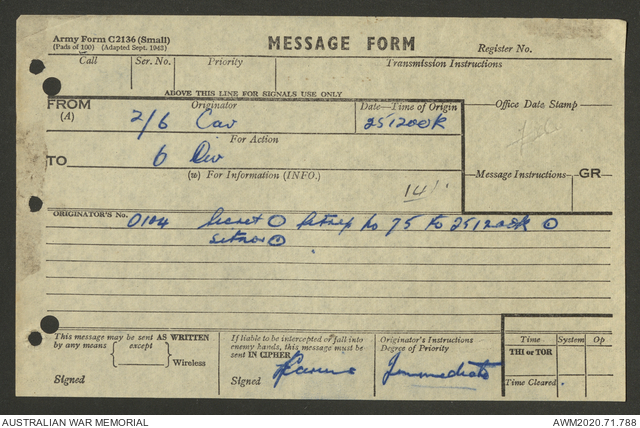 Army Form C2136 (Small)
(Pads of 100) (Adapted Sept. 1943)
MESSAGE FORM
Register No.
Call Ser. No. Priority Transmission Instructions
ABOVE THIS LINE FOR SIGNALS USE ONLY
FROM Originator Date—Time of Origin Office Date Stamp
(A) 2/6 Cav 251200K
For Action
TO 6 Div
(w) For Information (INFO.) Message Instructions GR
14
ORIGINATOR'S No. 0104 Secret sitrep No 75 to 251200K
sitnor
This message may be sent AS WRITTEN
by any means except
Wireless
Signed
If liable to be intercepted or fall into
enemy hands, this message must be
sent IN CIPHER
Signed
Originator's Instructions
Degree of Priority
Immediate
Time System Op
THI or TOR
Time Cleared
AUSTRALIAN WAR MEMORIAL AWM2020.71.788